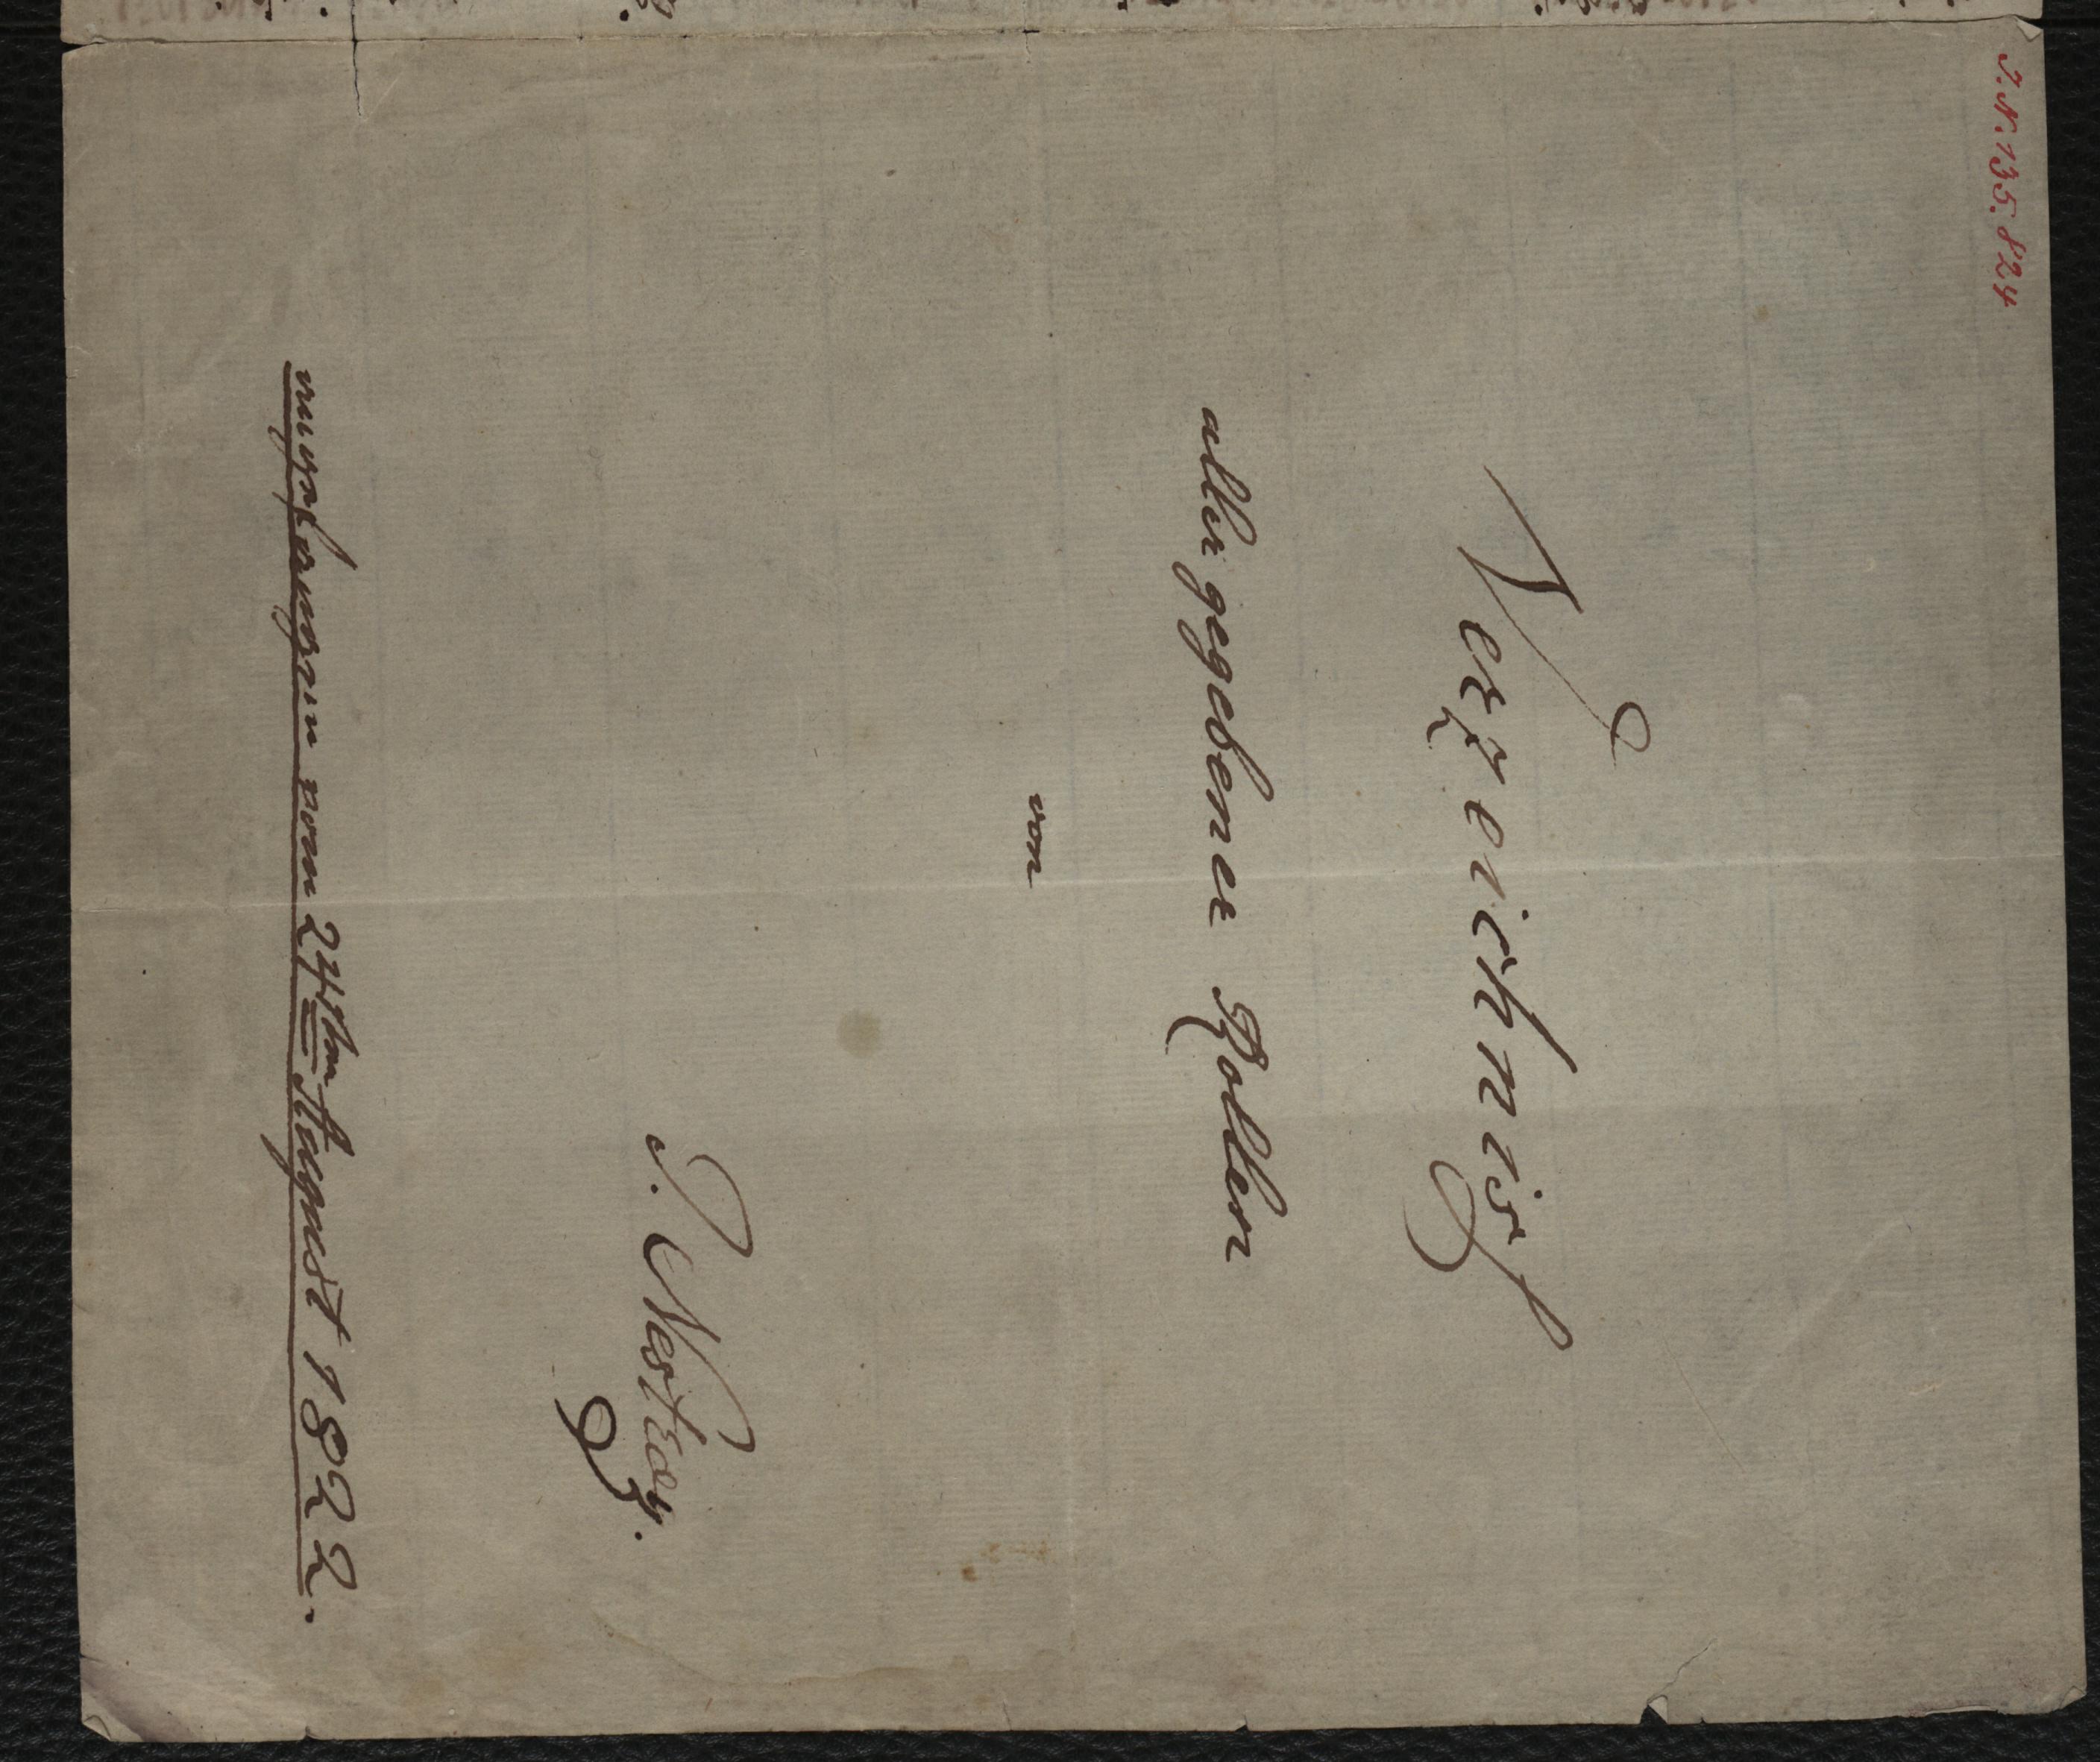 J.N. 135.824
Verzeichniss
aller gegebener Rollen
von
J. Nestroy.
angefangen vom 24sten August 1822.